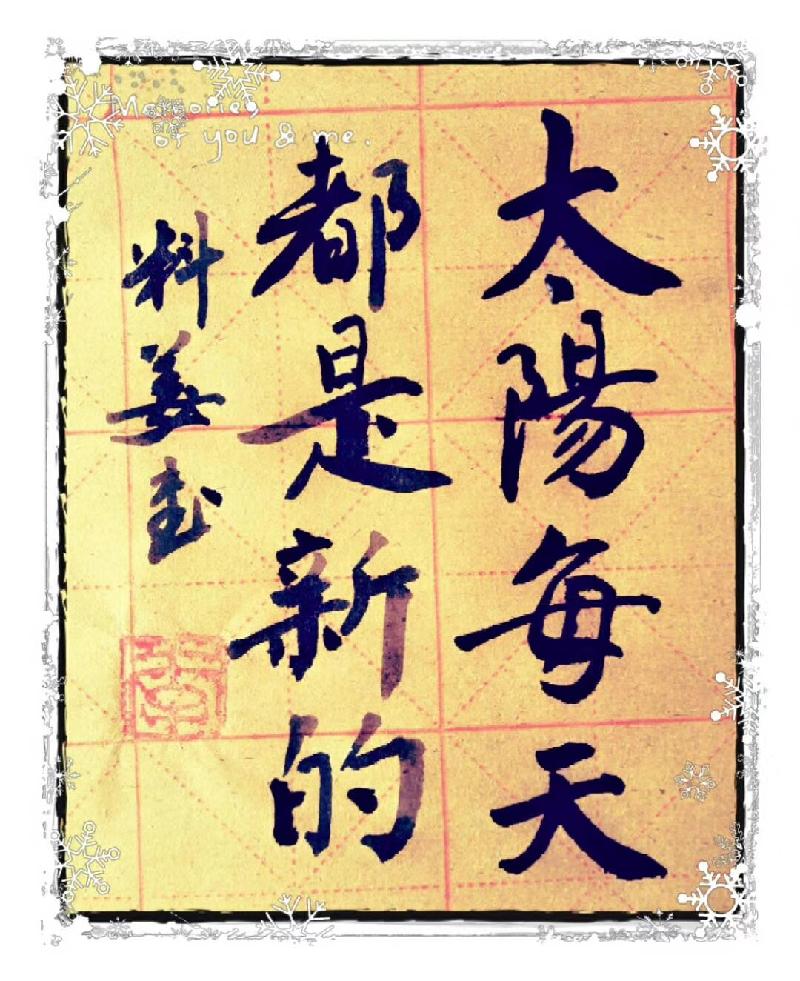 太陽每天
都是新的
料姜書
Memories
of you & me.